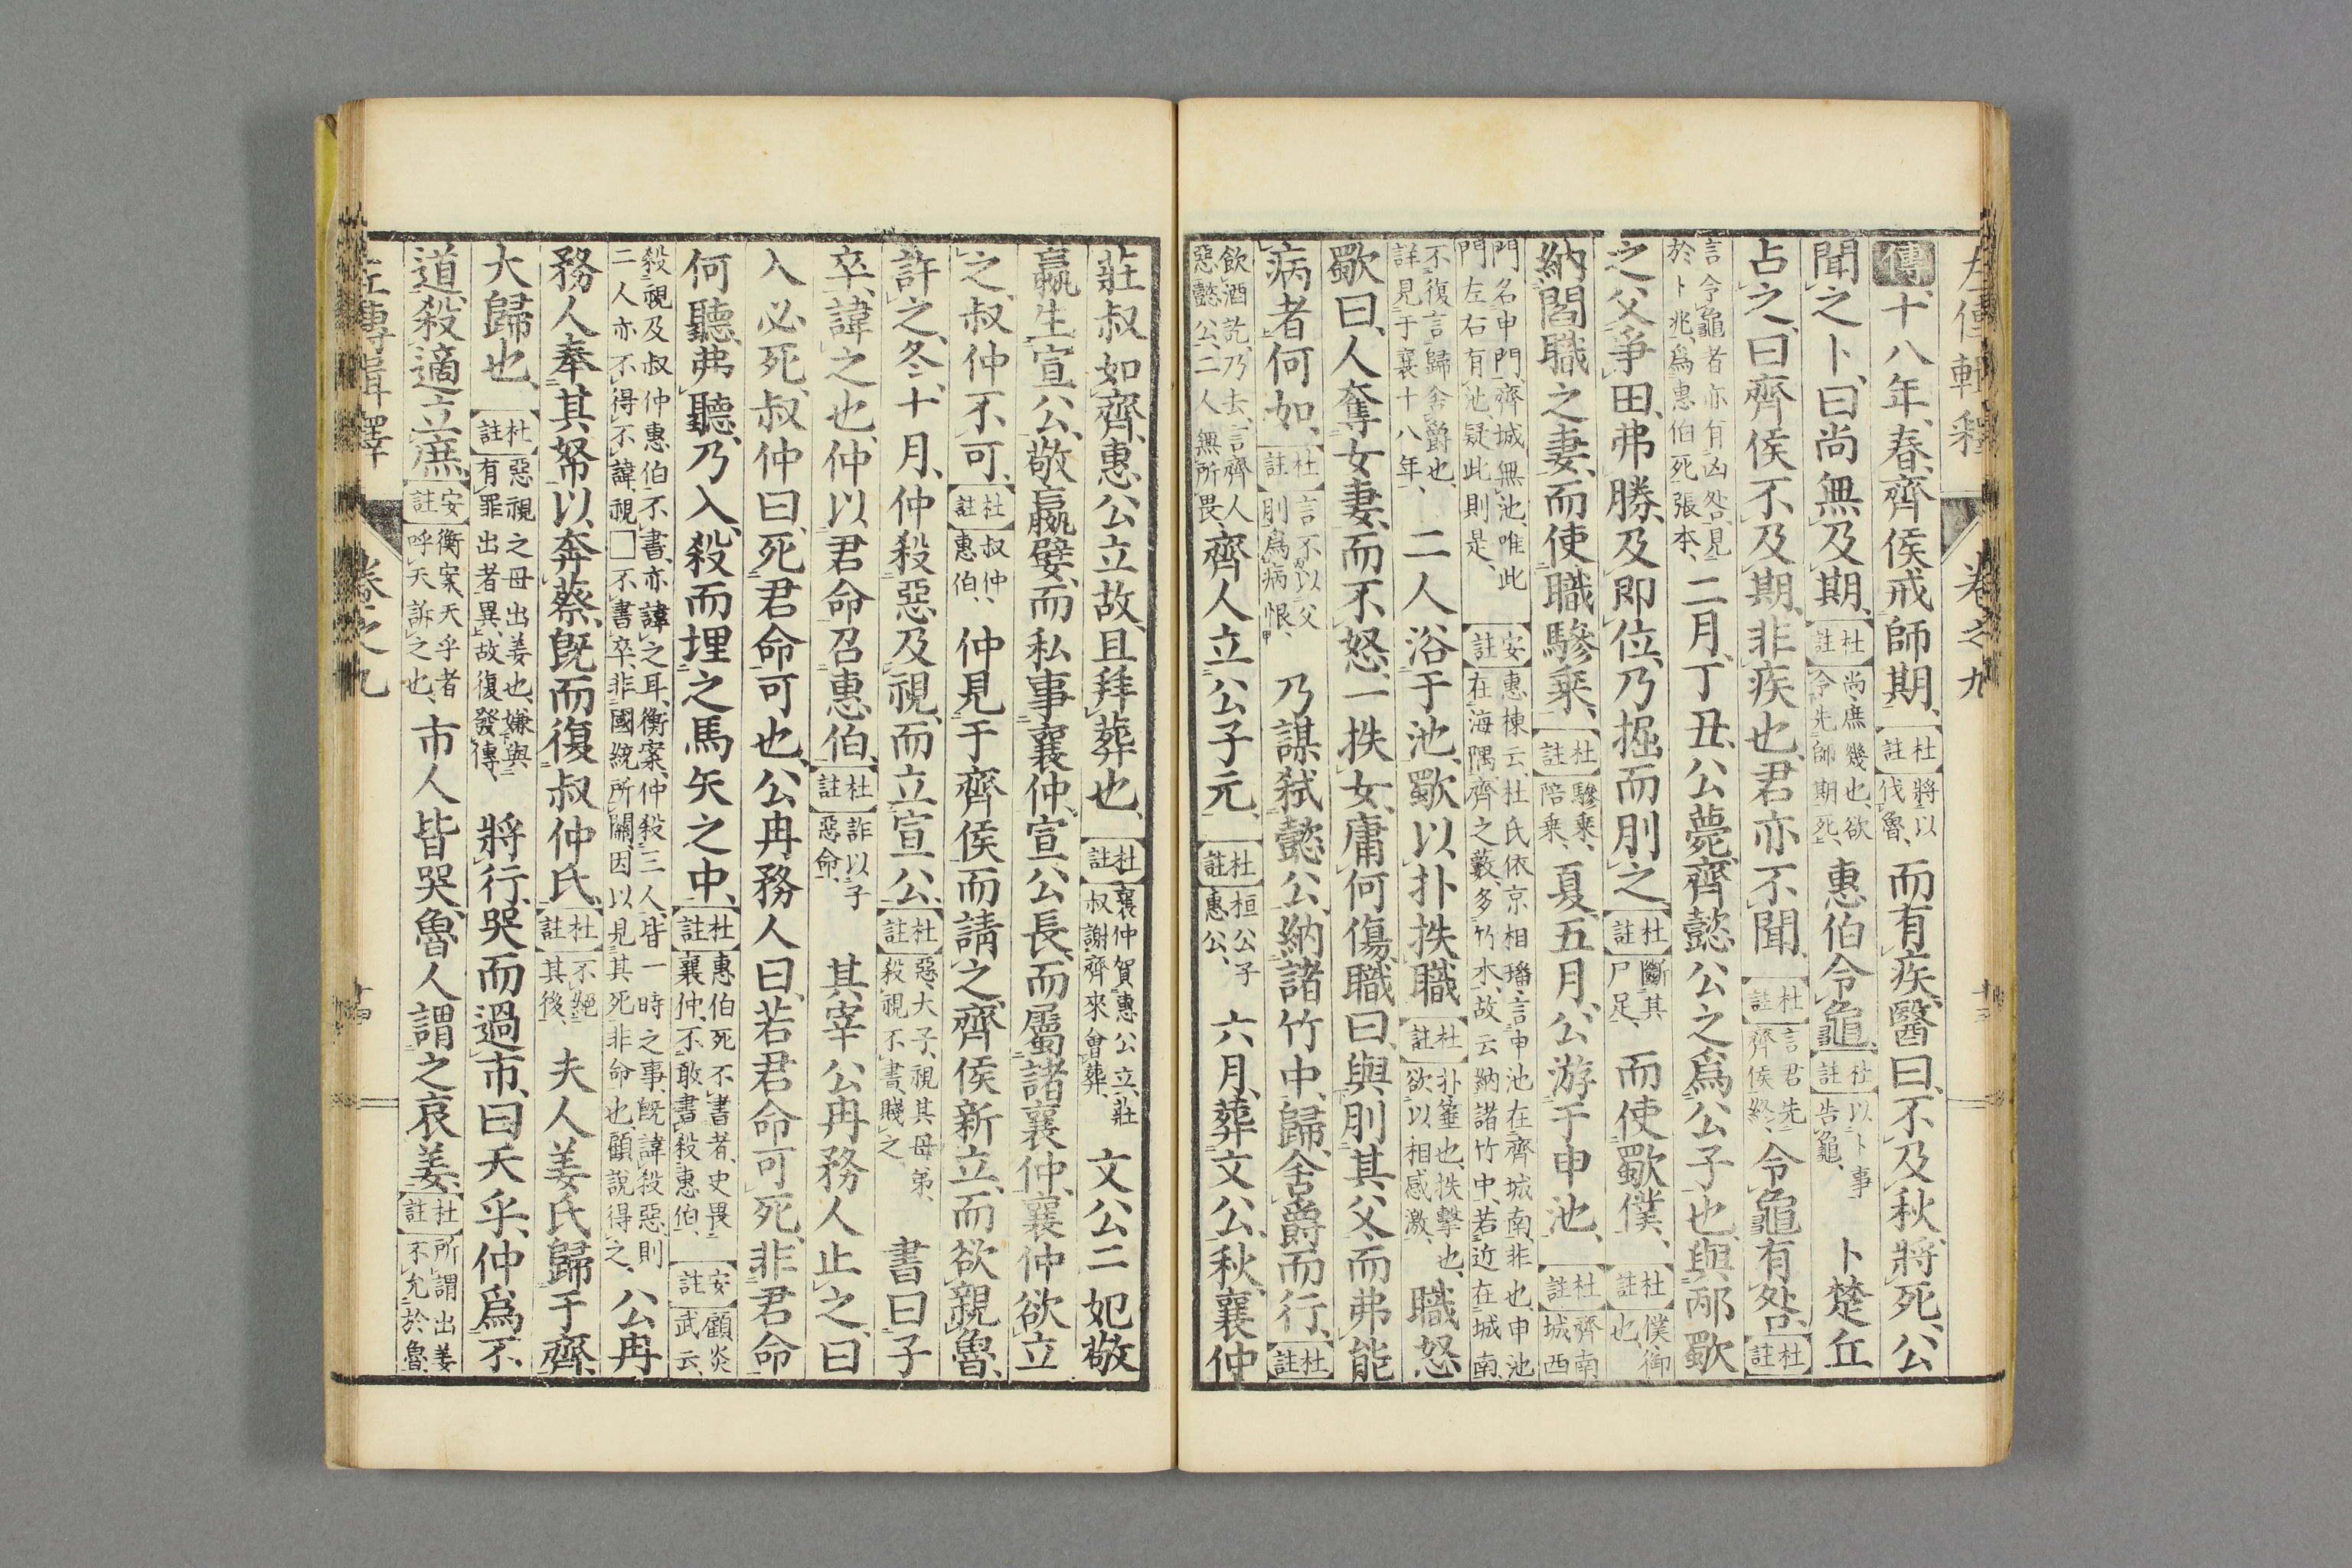 左傳輯釋 卷之九
傳十八年、春、齊侯戒師期、【杜註】將以伐魯、而有疾、醫曰、不及秋、將死、公
聞之卜、曰尚無及期、【杜註】尚庶幾也、欲令先師期死、惠伯令龜、【杜註】以卜事告龜、卜楚丘
占之、曰齊侯不及期、非疾也、君亦不聞、【杜註】言君先齊侯終、令龜有咎、【杜註】
言令龜者亦有凶咎、見於卜兆、爲惠伯死張本、二月、丁丑、公薨、齊懿公之爲公子也、與邴歜
之父爭田、弗勝、及即位、乃掘而刖之、【杜註】斷其尸足、而使歜僕、【杜註】僕御也、
納閻職之妻、而使職驂乘、【杜註】驂乘、陪乘、夏五月、公游于申池、【杜註】齊南城西
門名申門、齊城無池、唯此門左右有池、疑此則是、【安註】惠棟云、杜氏依京相璠、言申池在齊城南、非也、申池在海隅、齊之藪、多竹木、故云納諸竹中、若近在城南、
不復言歸舍爵也、詳見于襄十八年、二人浴于池、歜以扑抶職【杜註】扑箠也、抶擊也、欲以相感激、職怒
歜曰、人奪女妻、而不怒、一抶女、庸何傷、職曰、與刖其父、而弗能
病者何如、【杜註】言不以父刖爲病恨、乃謀弑懿公、納諸竹中、歸、舍爵而行、【杜註】
飲酒訖、乃去、言齊人惡懿公、二人無所畏、齊人立公子元、【杜註】桓公子惠公、六月、葬文公、秋、襄仲
莊叔如齊、惠公立故、且拜葬也、【杜註】襄仲賀惠公立、莊叔謝齊來會葬、文公二妃敬
嬴生宣公、敬嬴嬖、而私事襄仲、宣公長、而屬諸襄仲、襄仲欲立
之、叔仲不可、【杜註】叔仲、惠伯、仲見于齊侯而請之、齊侯新立、而欲親魯、
許之、冬、十月、仲殺惡、及視、而立宣公、【杜註】惡、大子、視其母弟、殺視不書、賤之、書曰子
卒、諱之也、仲以君命召惠伯、【杜註】詐以子惡命、其宰公冉務人止之、曰
入必死、叔仲曰、死君命可也、公冉務人曰、若君命可死、非君命
何聽、弗聽、乃入、殺而埋之馬矢之中、【杜註】惠伯死不書者、史畏襄仲、不敢書殺惠伯、【安註】顧炎武云、
殺視及叔仲惠伯不書、亦諱之耳、衡案、仲殺三人、皆一時之事、旣諱殺惡、則二人亦不得不諱、視□不書卒、非國統所關、因以見其死非命也、顧說得之、公冉
務人奉其帑、以奔蔡、旣而復叔仲氏、【杜註】不絕其後、夫人姜氏歸于齊、
大歸也、【杜註】惡視之母出姜也、嫌與有罪出者異、故復發傳、將行、哭而過市、曰天乎、仲爲不
道、殺適立庶、【安註】衡案、天乎者、呼天訴之也、市人皆哭、魯人謂之哀姜、【杜註】所謂出姜不允於魯、
左傳輯釋 卷之九 十四